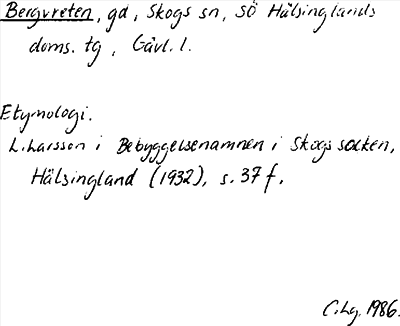 Bergvreten, gd, Skogs sn, SÖ Hälsinglands
doms. tg, Gävl. l.
Etymologi.
L. Larsson i Bebyggelsenamnen i Skogs socken,
Hälsingland (1932), s. 37 f.
C. Lg. 1986.